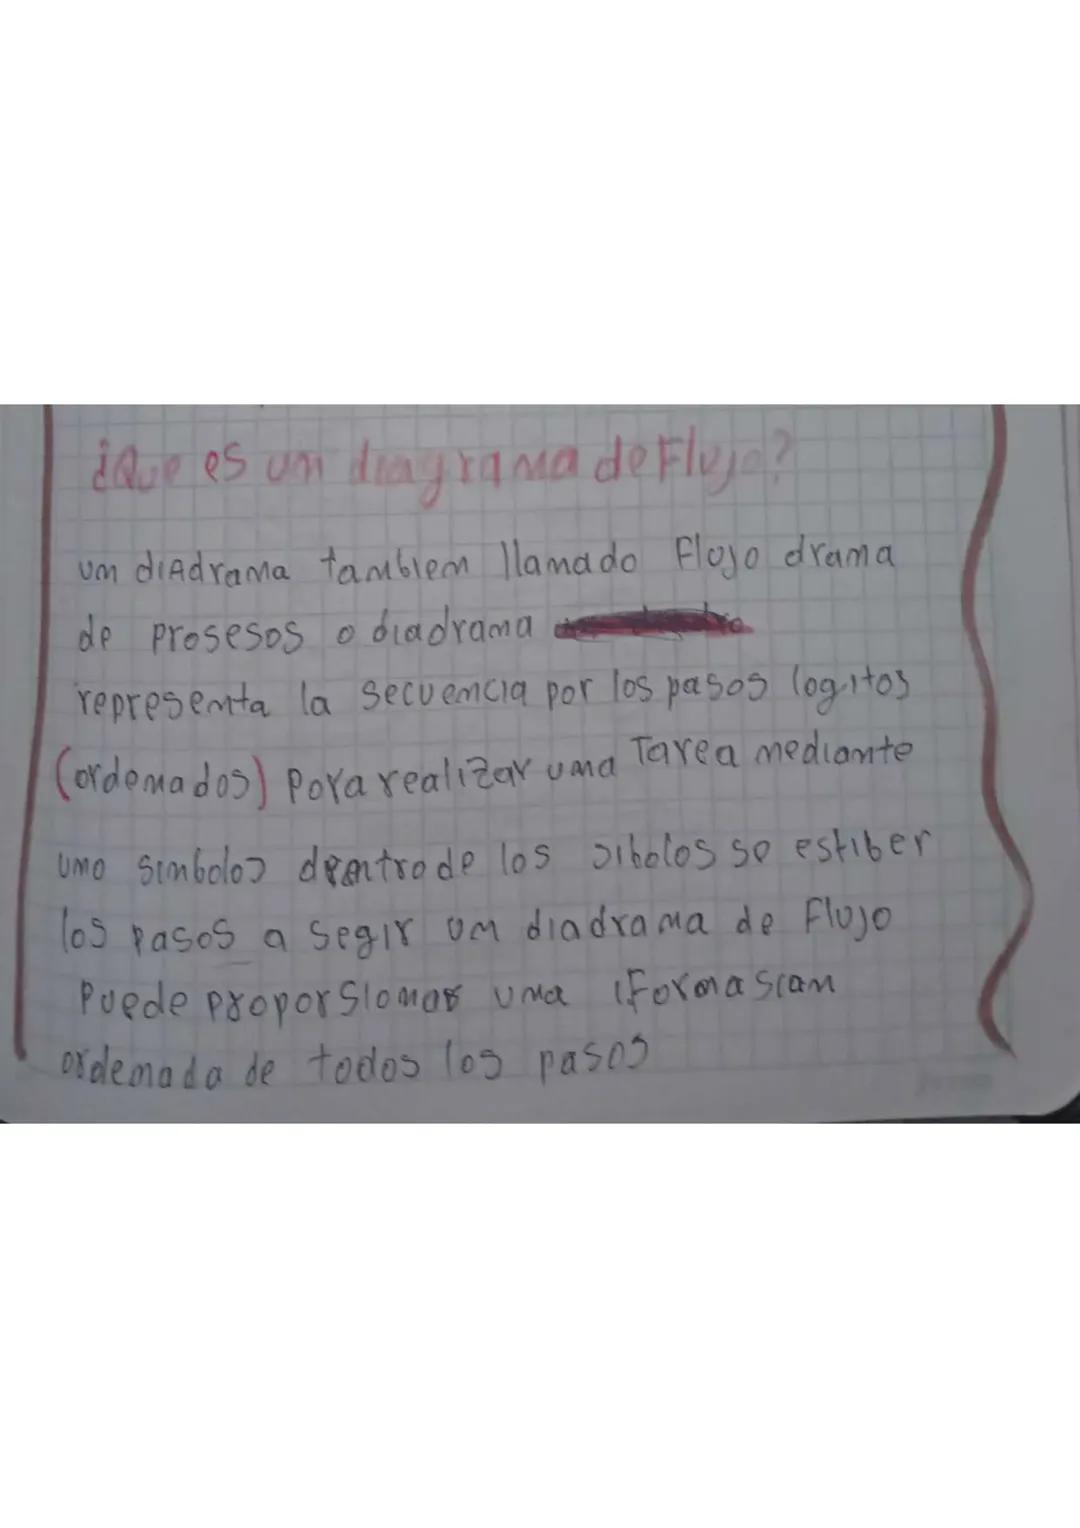 ¿Que es um diagrama de Flujo?
um diAdrama tambiem llamado Flojo drama
de prosesos o diadrama
representa la secuemcia por los pasos logitos
(ordemados) para realizar uma Tarea mediamte
umo simbolos dentro de los sibolos se estiber
los pasos a segir um diadrama de Flujo
Puede proporsiomar uma iFormasiam
ordemada de todos los pasos